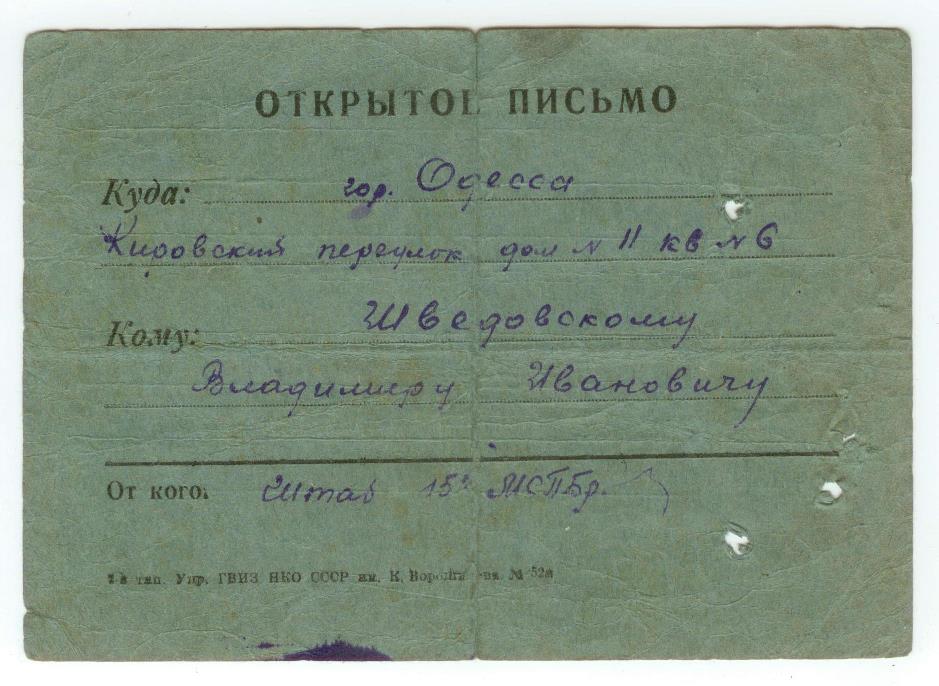 ОТКРЫТОЕ ПИСЬМО
Куда: гор. Одесса
Кировский переулок дом № 11 кв № 6
Кому: Шведовскому
Владимиру Ивановичу
От кого: Штаб 15й МСПБр.
тип. Упр. ГВИЗ НКО СССР им. К. № 52